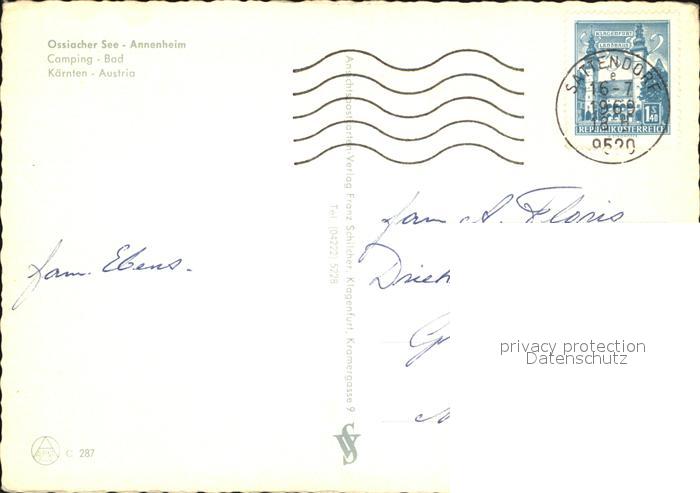 Ossiacher See - Annenheim
Camping - Bad
Kärnten - Austria
KLAGENFURT
LANDHAUS
REPUBLIK ÖSTERREICH
1 S 40
SATTENDORF
e
16-7
1969
18 H
9520
Ansichtspostkarten-Verlag Franz Schilcher, Klagenfurt, Kramergasse 9
Tel. (04222) 5228
fam. A. Floris
Driek
fam. Ebens.
privacy protection
Datenschutz
C 287